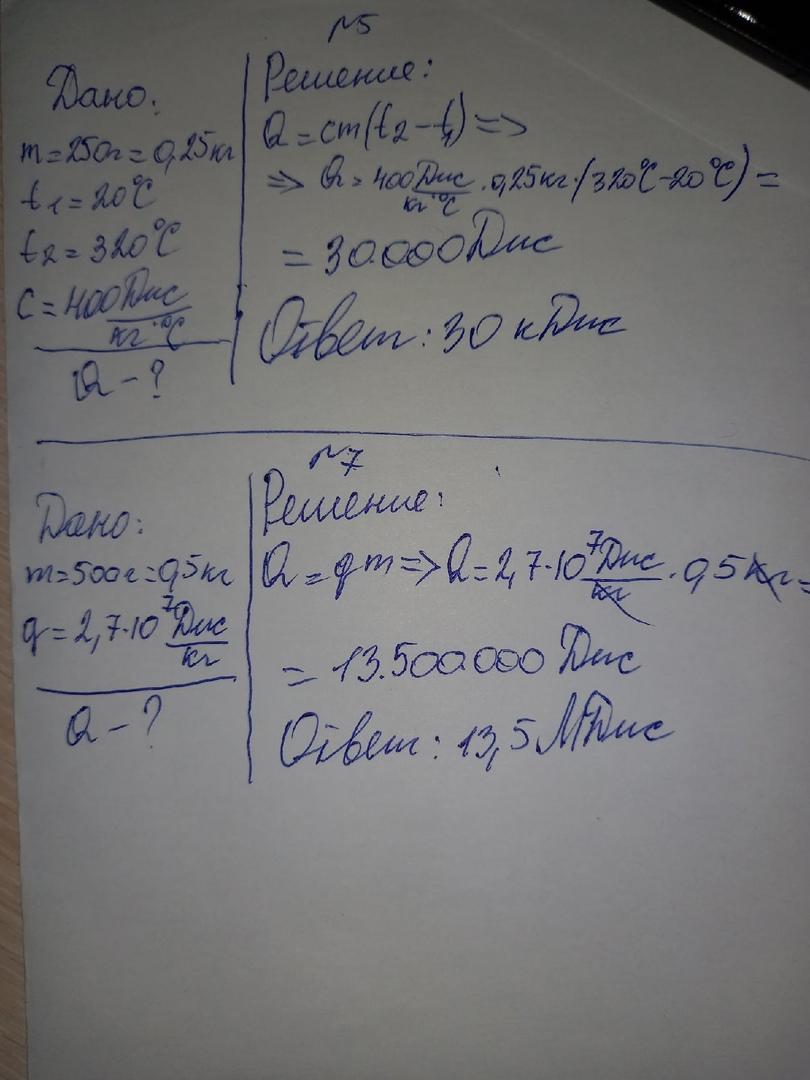 №5
Дано:
m=250г=0,25кг
t₁=20°C
t₂=320°C
C=400 Дж/кг·°C
Q-?
Решение:
Q=cm(t₂-t₁)=>
=> Q=400 Дж/кг·°C · 0,25кг·(320°C-20°C)=
=30.000Дж
Ответ: 30 кДж
№7
Дано:
m=500г=0,5кг
q=2,7·10⁷ Дж/кг
Q-?
Решение:
Q=qm=>Q=2,7·10⁷ Дж/кг · 0,5кг=
=13.500.000 Дж
Ответ: 13,5 МДж